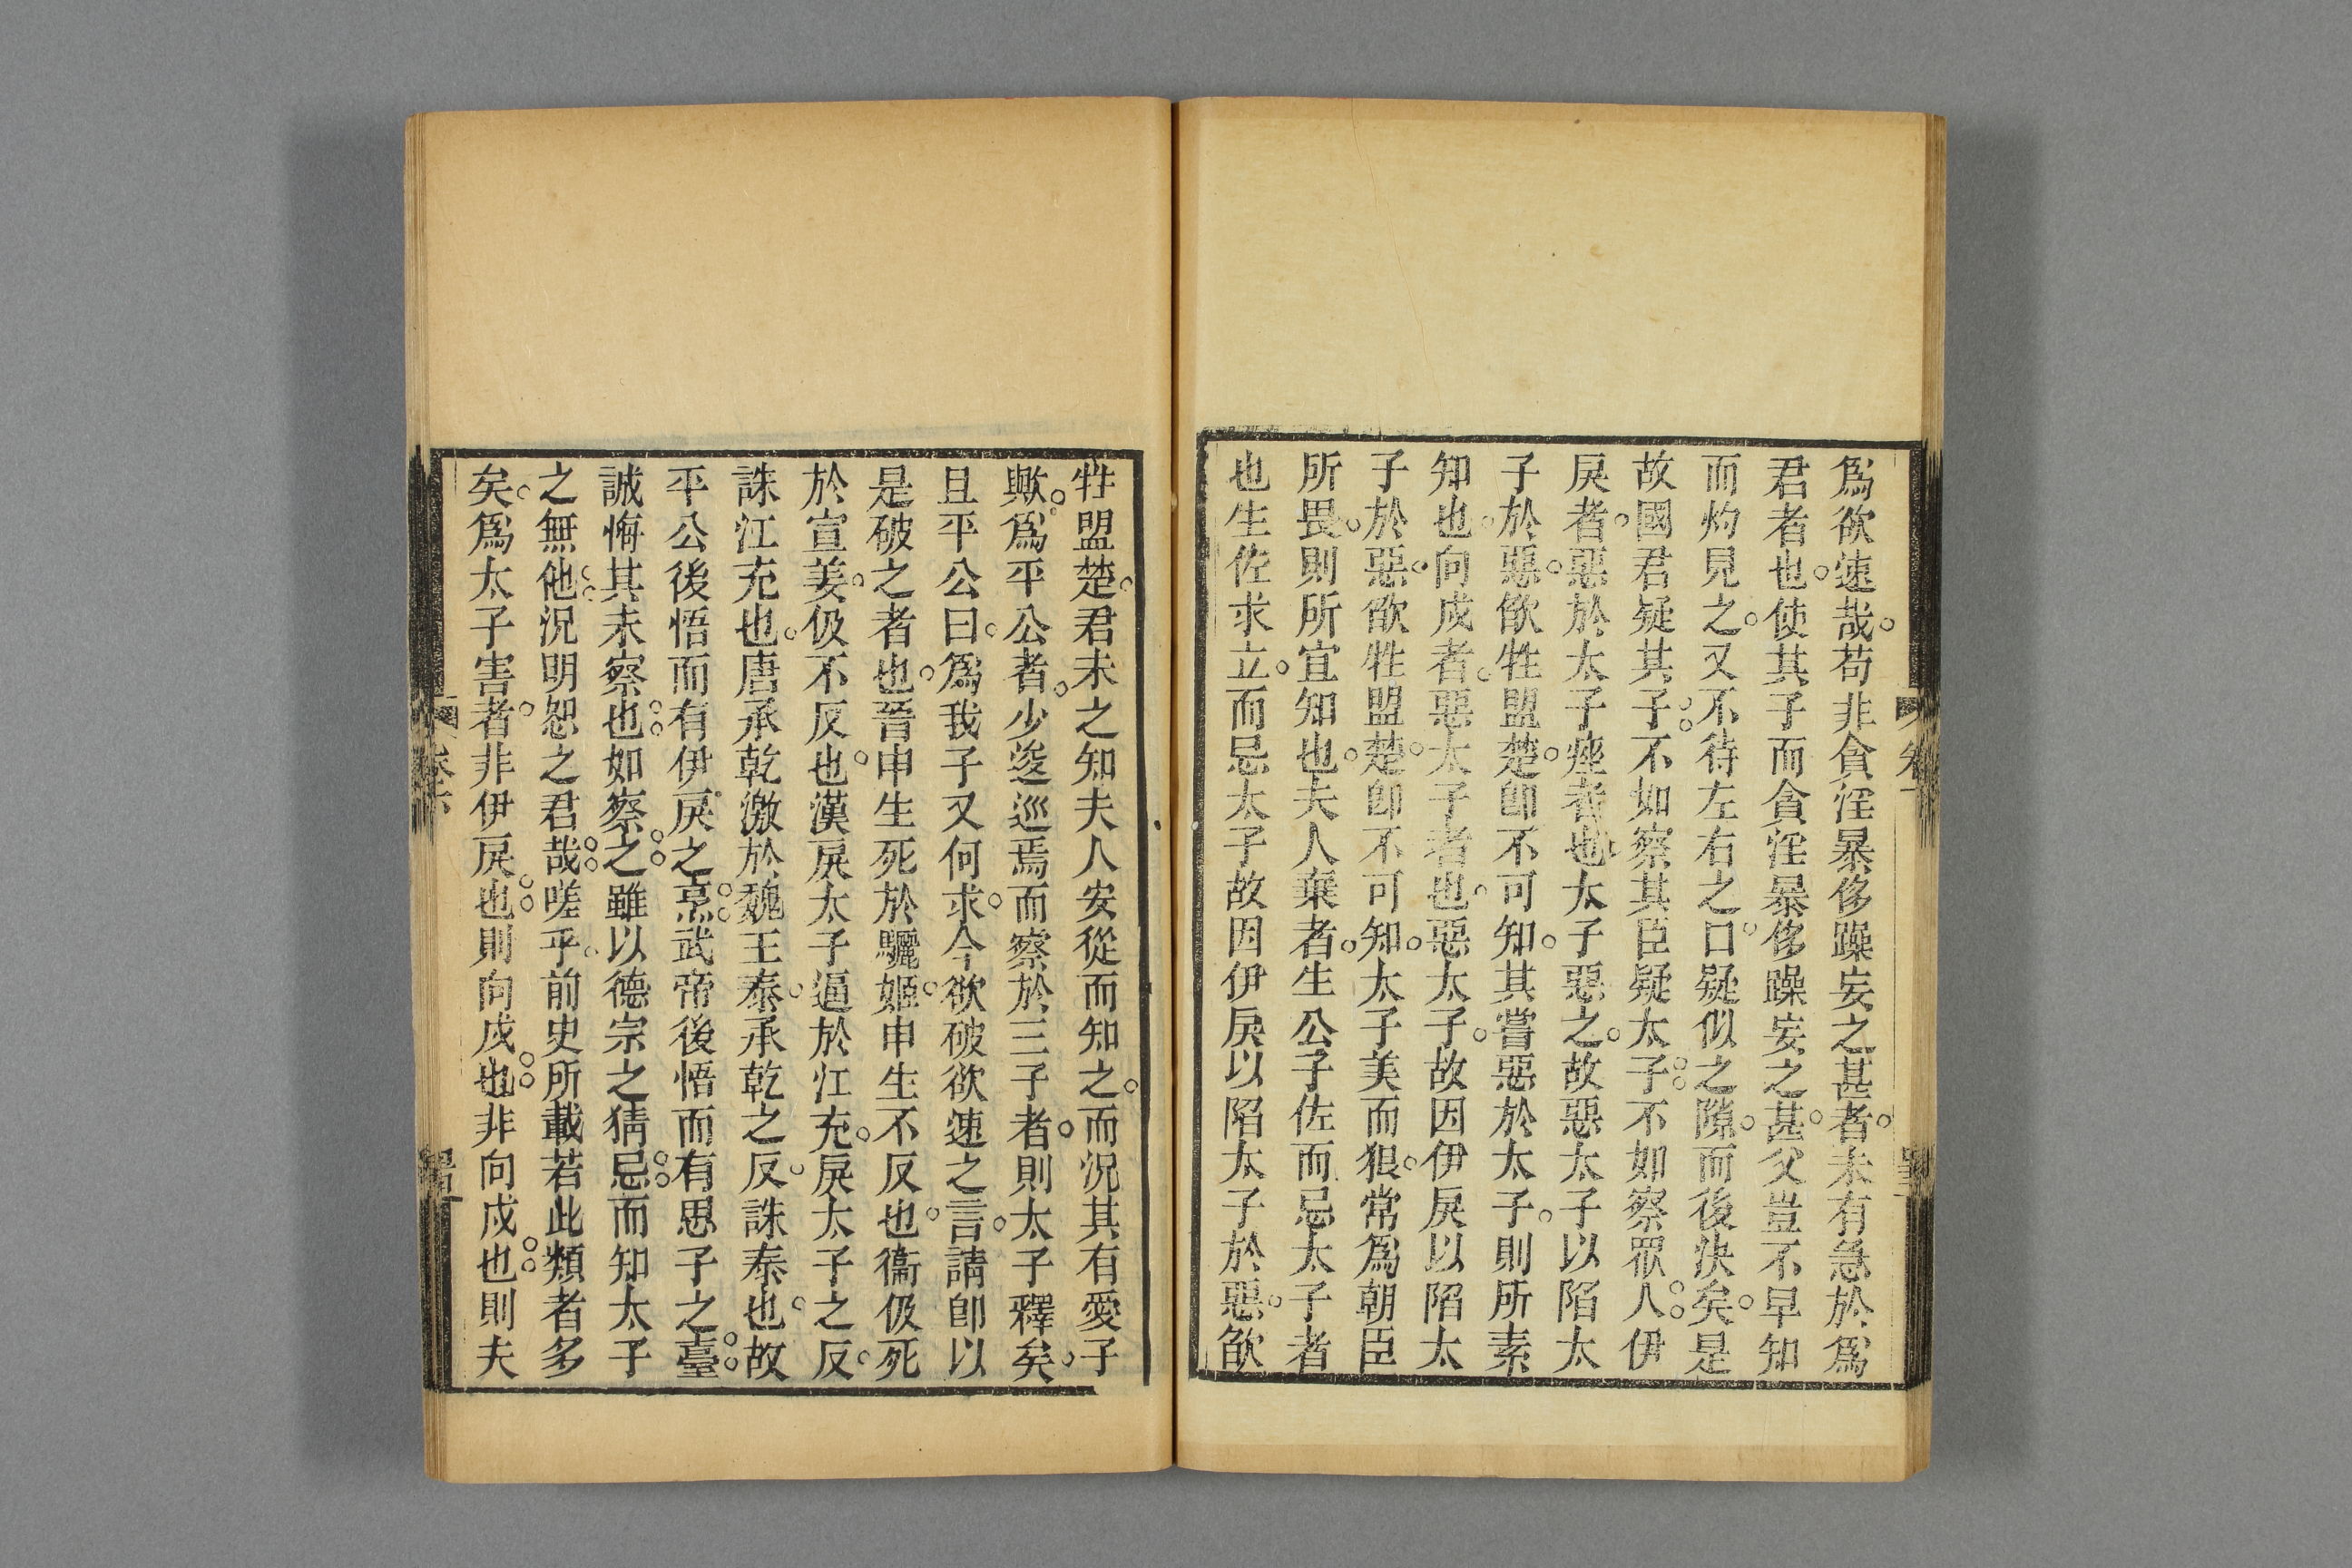 爲欲速哉苟非貪淫暴侈躁妄之甚者未有急於爲
君者也使其子而貪淫暴侈躁妄之甚父豈不早知
而灼見之又不待左右之口疑似之隙而後決矣是
故國君疑其子不如察其臣疑太子不如察眾人伊
戾者惡於太子痤者也太子惡之故惡太子以陷太
子於惡欿牲盟楚卽不可知其嘗惡於太子則所素
知也向戌者惡太子者也惡太子故因伊戾以陷太
子於惡欿牲盟楚卽不可知太子美而狠常爲朝臣
所畏則所宜知也夫人棄者生公子佐而忌太子者
也生佐求立而忌太子故因伊戾以陷太子於惡欿
牲盟楚君未之知夫人安從而知之而況其有愛子
歟爲平公者少逡巡焉而察於三子者則太子釋矣
且平公曰爲我子又何求今欲破欲速之言請卽以
是破之者也晉申生死於驪姬申生不反也衞伋死
於宣姜伋不反也漢戾太子逼於江充戾太子之反
誅江充也唐承乾激於魏王泰承乾之反誅泰也故
平公後悟而有伊戾之烹武帝後悟而有思子之臺
誠悔其未察也如察之雖以德宗之猜忌而知太子
之無他況明恕之君哉嗟乎前史所載若此類者多
矣爲太子害者非伊戾也則向戌也非向戌也則夫
卷六